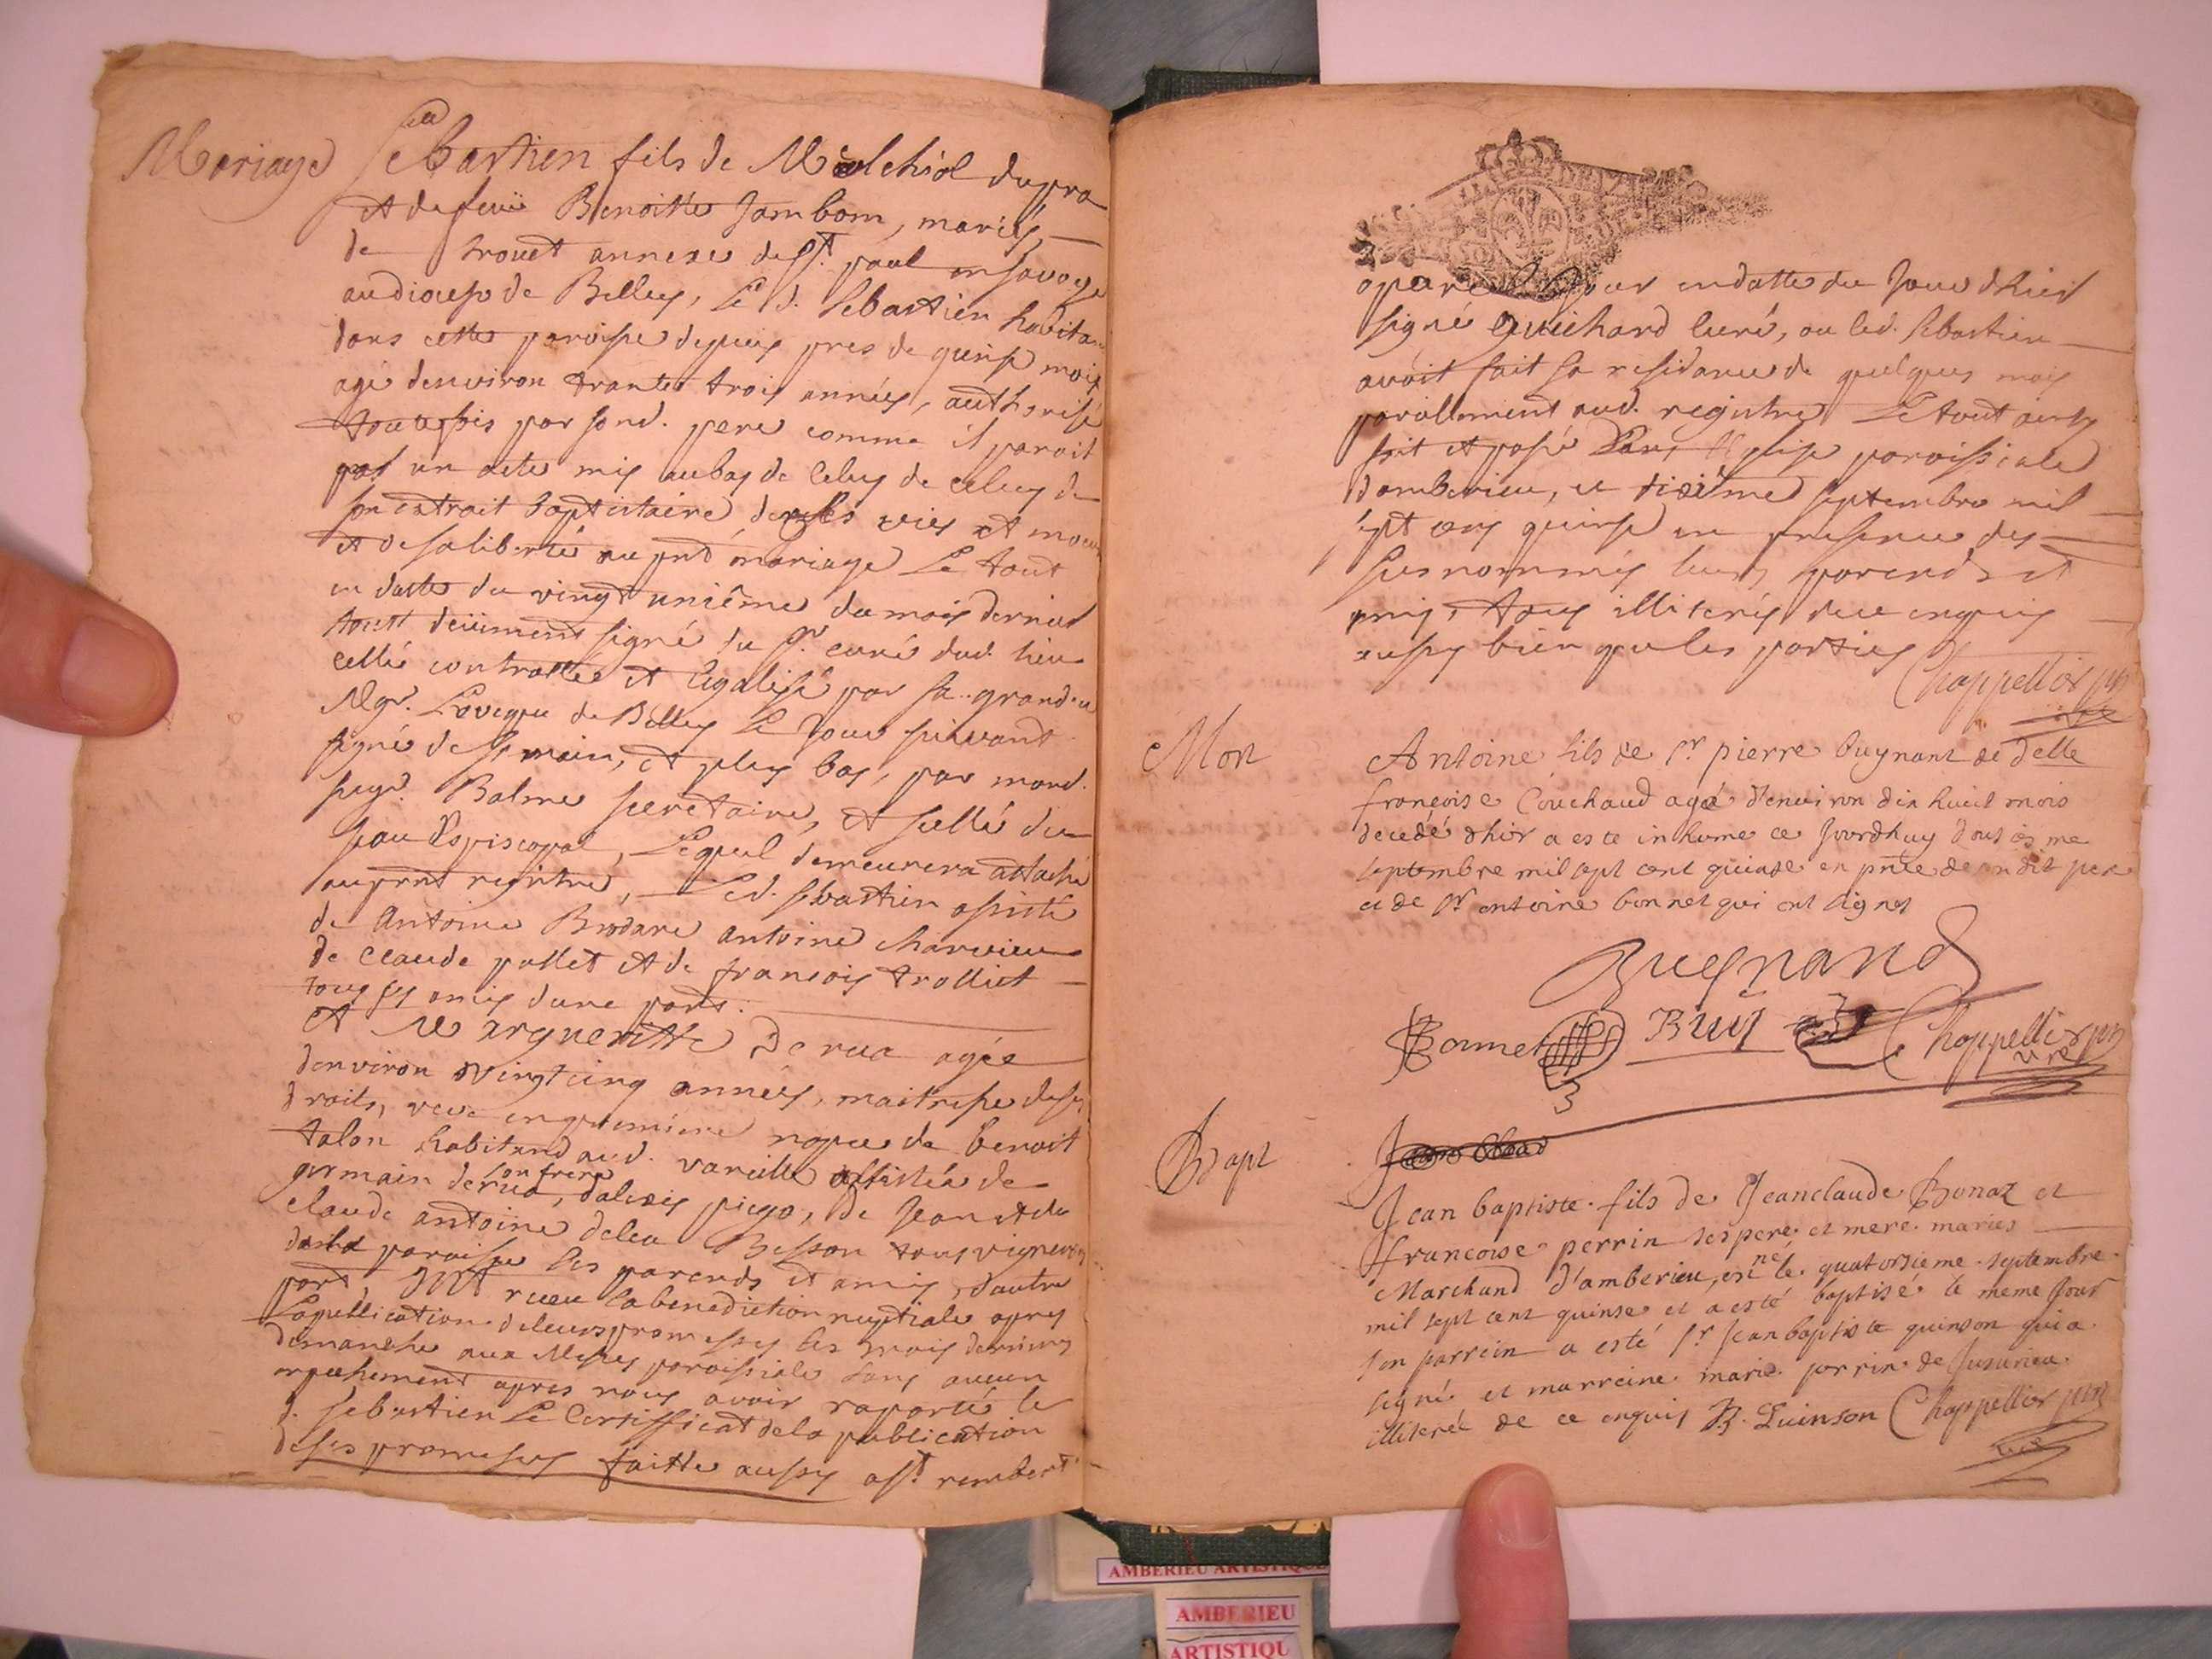 Mariage
Sébastien fils de Melchiol dupra
et de feuë Benoitte Jambom, mariés,
de trouet annexe de St. paul en savoye
au diocese de Belley, Le d. Sebastien habitan
dans cette paroisse depuis pres de quinse mois
agé denviron trante trois années, authorisé
toutefois par sond. pere comme il paroit
par un acte mis au bas de celuy de celuy de
son extrait baptistaire de ses vies et moeurs
et de sa liberté au pnt mariage Le tout
en datte du vingt unième du mois dernier
tout deüiment signé du Sr. curé dud. lieu
cellé controllé et legalisé par sa grandeur
Mgr. L'eveque de Belley Le Jour suivant
signé de sa main, et plus bas, par mond.
seigr. Balme secretaire, et scellé du
seau Episcopal, Lequel demeurera attaché
au pnt registre, Led. Sebastien assisté
de Antoine Brodare antoine charvieu
de claude pollet et de francois trolliet
tous ses amis dune part.
et Margueritte Derua agée
denviron vingt cinq années, maitresse de ses
droits, veve en premiere nopce de benoit
talon habitand aud. vareille assistée de
germain derua son frere, dalexis piego, de Jean et de
claude antoine deleu Besson tous vignerons
de la paroisse ses parends et amis, d'autre
part, ont receu la benediction nuptiale apres
La publication de leurs promesses les trois derniers
dimanche aux Messes paroissiale sans aucun
empechement apres nous avoir raporté le
d. sebastien Le Certifficat de la publication
de ses promesses faitte aussy a St. rembert
apare Jour en datte du Jour d'hier
signé Guichard curé, ou led. Sebastien
avoit fait sa residance de quelques mois
parallement aud. registre Le tout ainsy
fait et passé dans l'Eglise paroissiale
d'amberieu, ce dixième septembre mil
sept cens quinse en presence des
susnommés leurs parends et
amis, tous illiterés de ce enquis
aussy bien que les parties
Chappellier ptre
Mort
Antoine fils de Sr pierre bugnant de delle
françoise Couchaud agé d'environ dix huit mois
decedé d'hier a esté inhumé ce Jourdhuy dousiesme
septembre mil sept cent quinse en pnce de son dit pere
et de Sr antoine bonnet qui ont signes
Bugnand
Bonnet Buy Chappellier ptre
vire
Bapt
Jean baptiste fils de Jeanclaude Bonaz et
francoise perrin ses pere et mere maries
Marchand d'amberieu, est né le quatorsieme septembre
mil sept cent quinse et a esté baptisé le meme Jour
son parrein a esté Sr Jean baptiste quinson qui a
signé et marreine marie perrin de Jusurieu
illiterée de ce enquis B. Quinson Chappellier ptre
vire
AMBERIEU ARTISTIQUE
AMBERIEU
ARTISTIQU